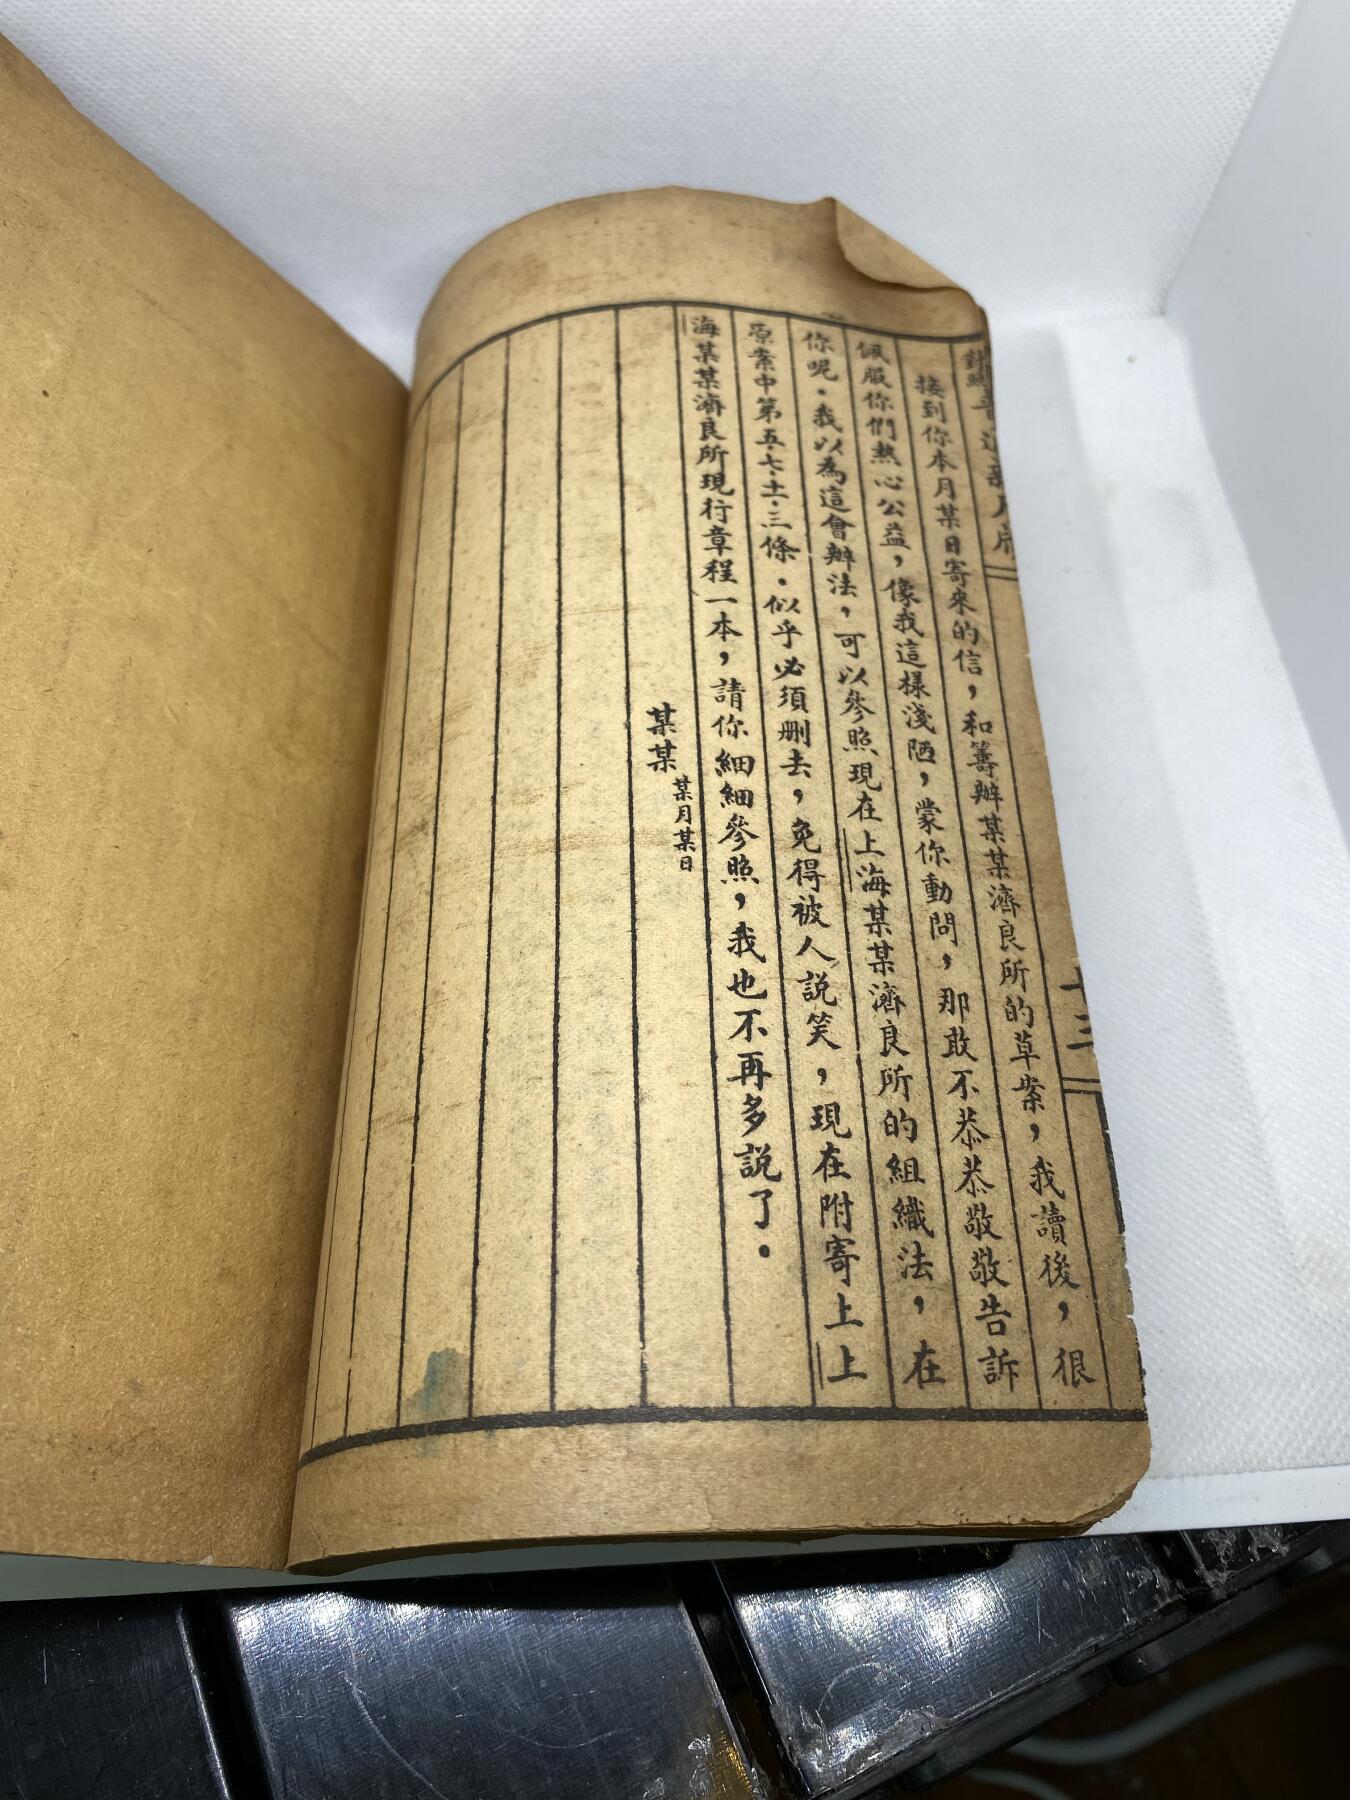 對照
十三
接到你本月某日寄來的信，和籌辦某某濟良所的草案，我讀後，很
佩服你們熱心公益，像我這樣淺陋，蒙你動問，那敢不恭恭敬敬告訴
你呢．我以為這會辦法，可以參照現在上海某某濟良所的組織法，在
原案中第五．七．十．三條．似乎必須刪去，免得被人説笑，現在附寄上上
海某某濟良所現行章程一本，請你細細參照，我也不再多説了．
某某
某月某日